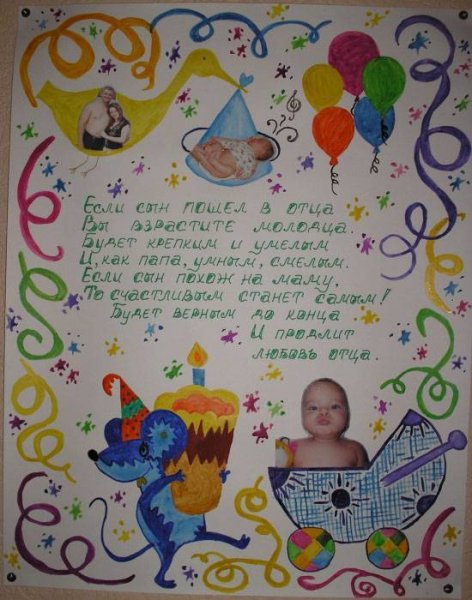 Если сын пошел в отца
Вы взрастите молодца.
Будет крепким и умелым
И, как папа, умным, смелым.
Если сын похож на маму,
То счастливым станет самым!
Будет верным до конца
И продлит
любовь отца.